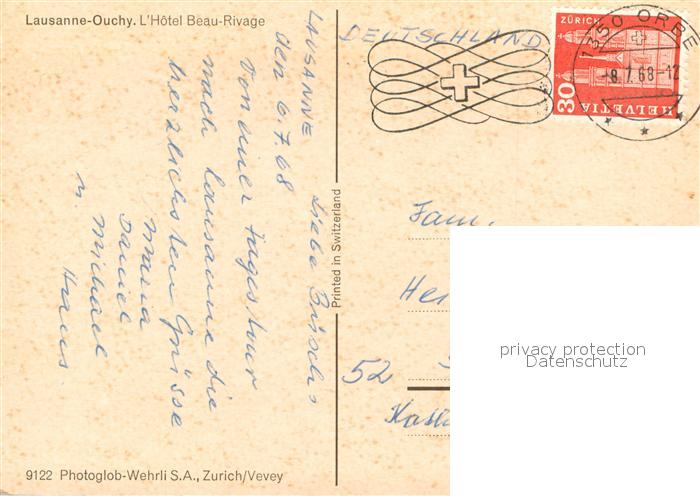 Lausanne-Ouchy. L'Hôtel Beau-Rivage
LAUSANNE
den 6.7.68
Liebe Brischs
von einer Tagestour
nach Lausanne die
herzlichsten Grüsse
Maria
Daniel
u. Michael
Hans.
9122 Photoglob-Wehrli S.A., Zurich/Vevey
Printed in Switzerland
DEUTSCHLAND
ZÜRICH
30
HELVETIA
1350 ORBE
-8.7.68-12
Fam.
52
privacy protection
Datenschutz